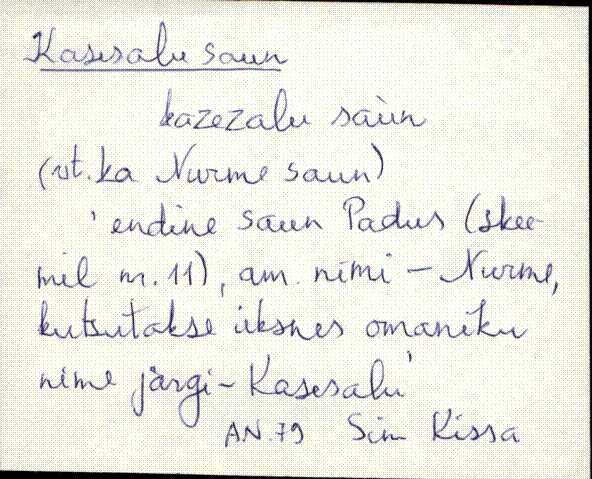 Kasesalu saun
kazezalu saùn
(vt. ka Nurme saun)
'endine saun Padus (skee-
mil nr. 11), am. nimi - Nurme,
kutsutakse üksnes omaniku
nime järgi - Kasesalu'
AN. 79 Sim Kissa